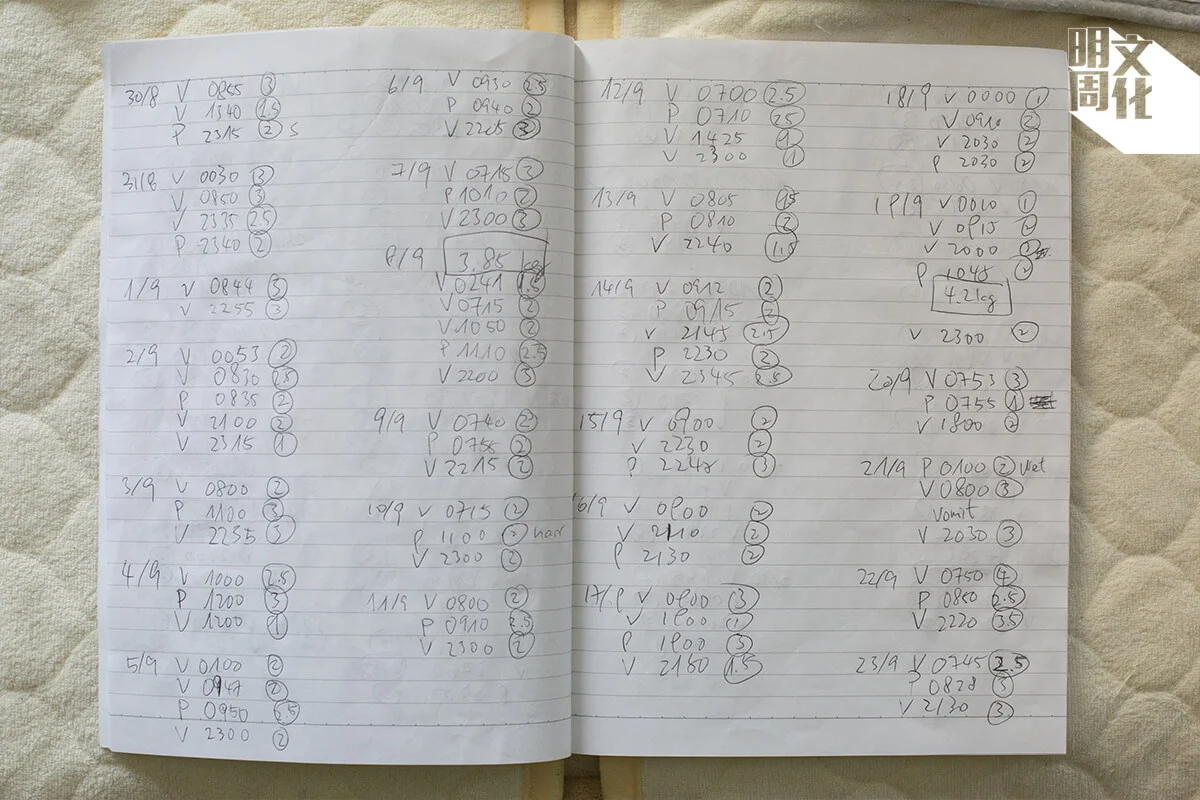 30/8 V 0855 ③
V 1340 1.5
P 2315 ② S
31/8 V 0030 ③
V 0850 ③
V 2335 2.5
P 2340 ②
1/9 V 0844 ③
V 2255 ③
2/9 V 0053 ②
V 0830 2.5
P 0835 ②
V 2100 ②
V 2315 ①
3/9 V 0800 ②
P 1100 ③
V 2255 ③
4/9 V 1000 2.5
P 1200 ③
V 1200 ①
5/9 V 0100 ②
V 0947 ②
P 0950 2.5
V 2300 ②
6/9 V 0930 2.5
P 0940 ②
V 2205 ③
7/9 V 0715 ③
P 1010 ②
V 2300 ③
8/9 3.85 kg
V 0241 1.5
V 0715 ②
V 1050 ②
P 1110 2.5
V 2200 ③
9/9 V 0740 ②
P 0755 ②
V 2215 ②
10/9 V 0715 ②
P 1100 ②
V 2300 ②
11/9 V 0800 ②
P 0910 2.5
V 2300 ②
12/9 V 0700 2.5
P 0710 2.5
V 1425 ①
V 2300 ①
13/9 V 0805 1.5
P 0810 ②
V 2240 1.5
14/9 V 0912 ②
P 0915 ②
V 2145 2.5
P 2230 ②
V 2345 2.5
15/9 V 0900 ②
V 2230 ②
P 2248 ③
16/9 V 0900 ②
V 2110 ②
P 2130 ②
17/9 V 0900 ③
V 1900 ①
P 1900 ③
V 2150 1.5
18/9 V 0000 ①
V 0910 ②
V 2030 ②
P 2030 ②
19/9 V 0010 ①
V 0915 ②
V 2000
P 1045 ②
4.2kg
V 2300 ②
20/9 V 0753 ③
P 0755 ①
V 1800 ②
21/9 P 0100 ② Wet
V 0800 ③
Vomit
V 2030 ③
22/9 V 0750 ④
P 0850 2.5
V 2220 3.5
23/9 V 0745 2.5
P 0828 ③
V 2130 ③
明周文化